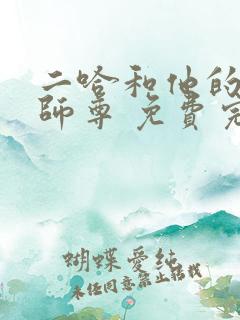 二哈和他的
師尊 免費完
蝴蝶愛純
未经同意禁止转载